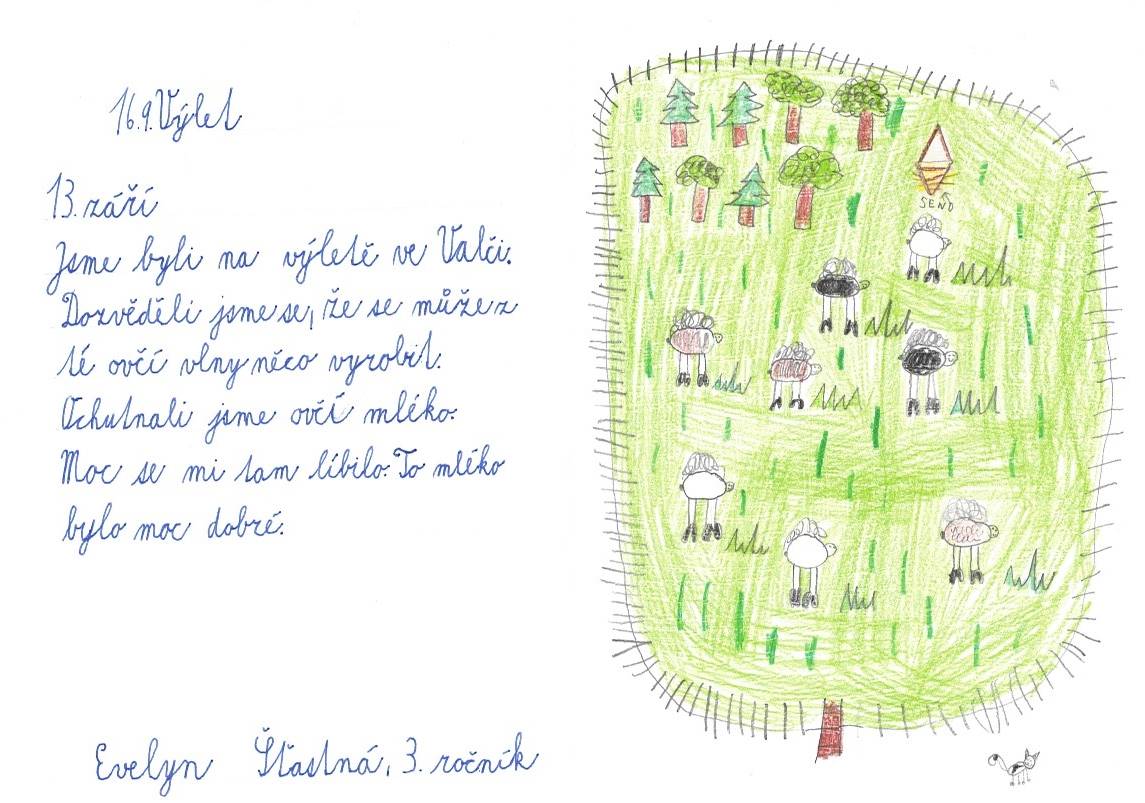 16.9. Výlet
13. září
Jsme byli na výletě ve Valči.
Dozvěděli jsme se, že se může z
té ovčí vlny něco vyrobit.
Ochutnali jsme ovčí mléko.
Moc se mi tam líbilo. To mléko
bylo moc dobré.
Evelyn Šťastná, 3. ročník
SENO